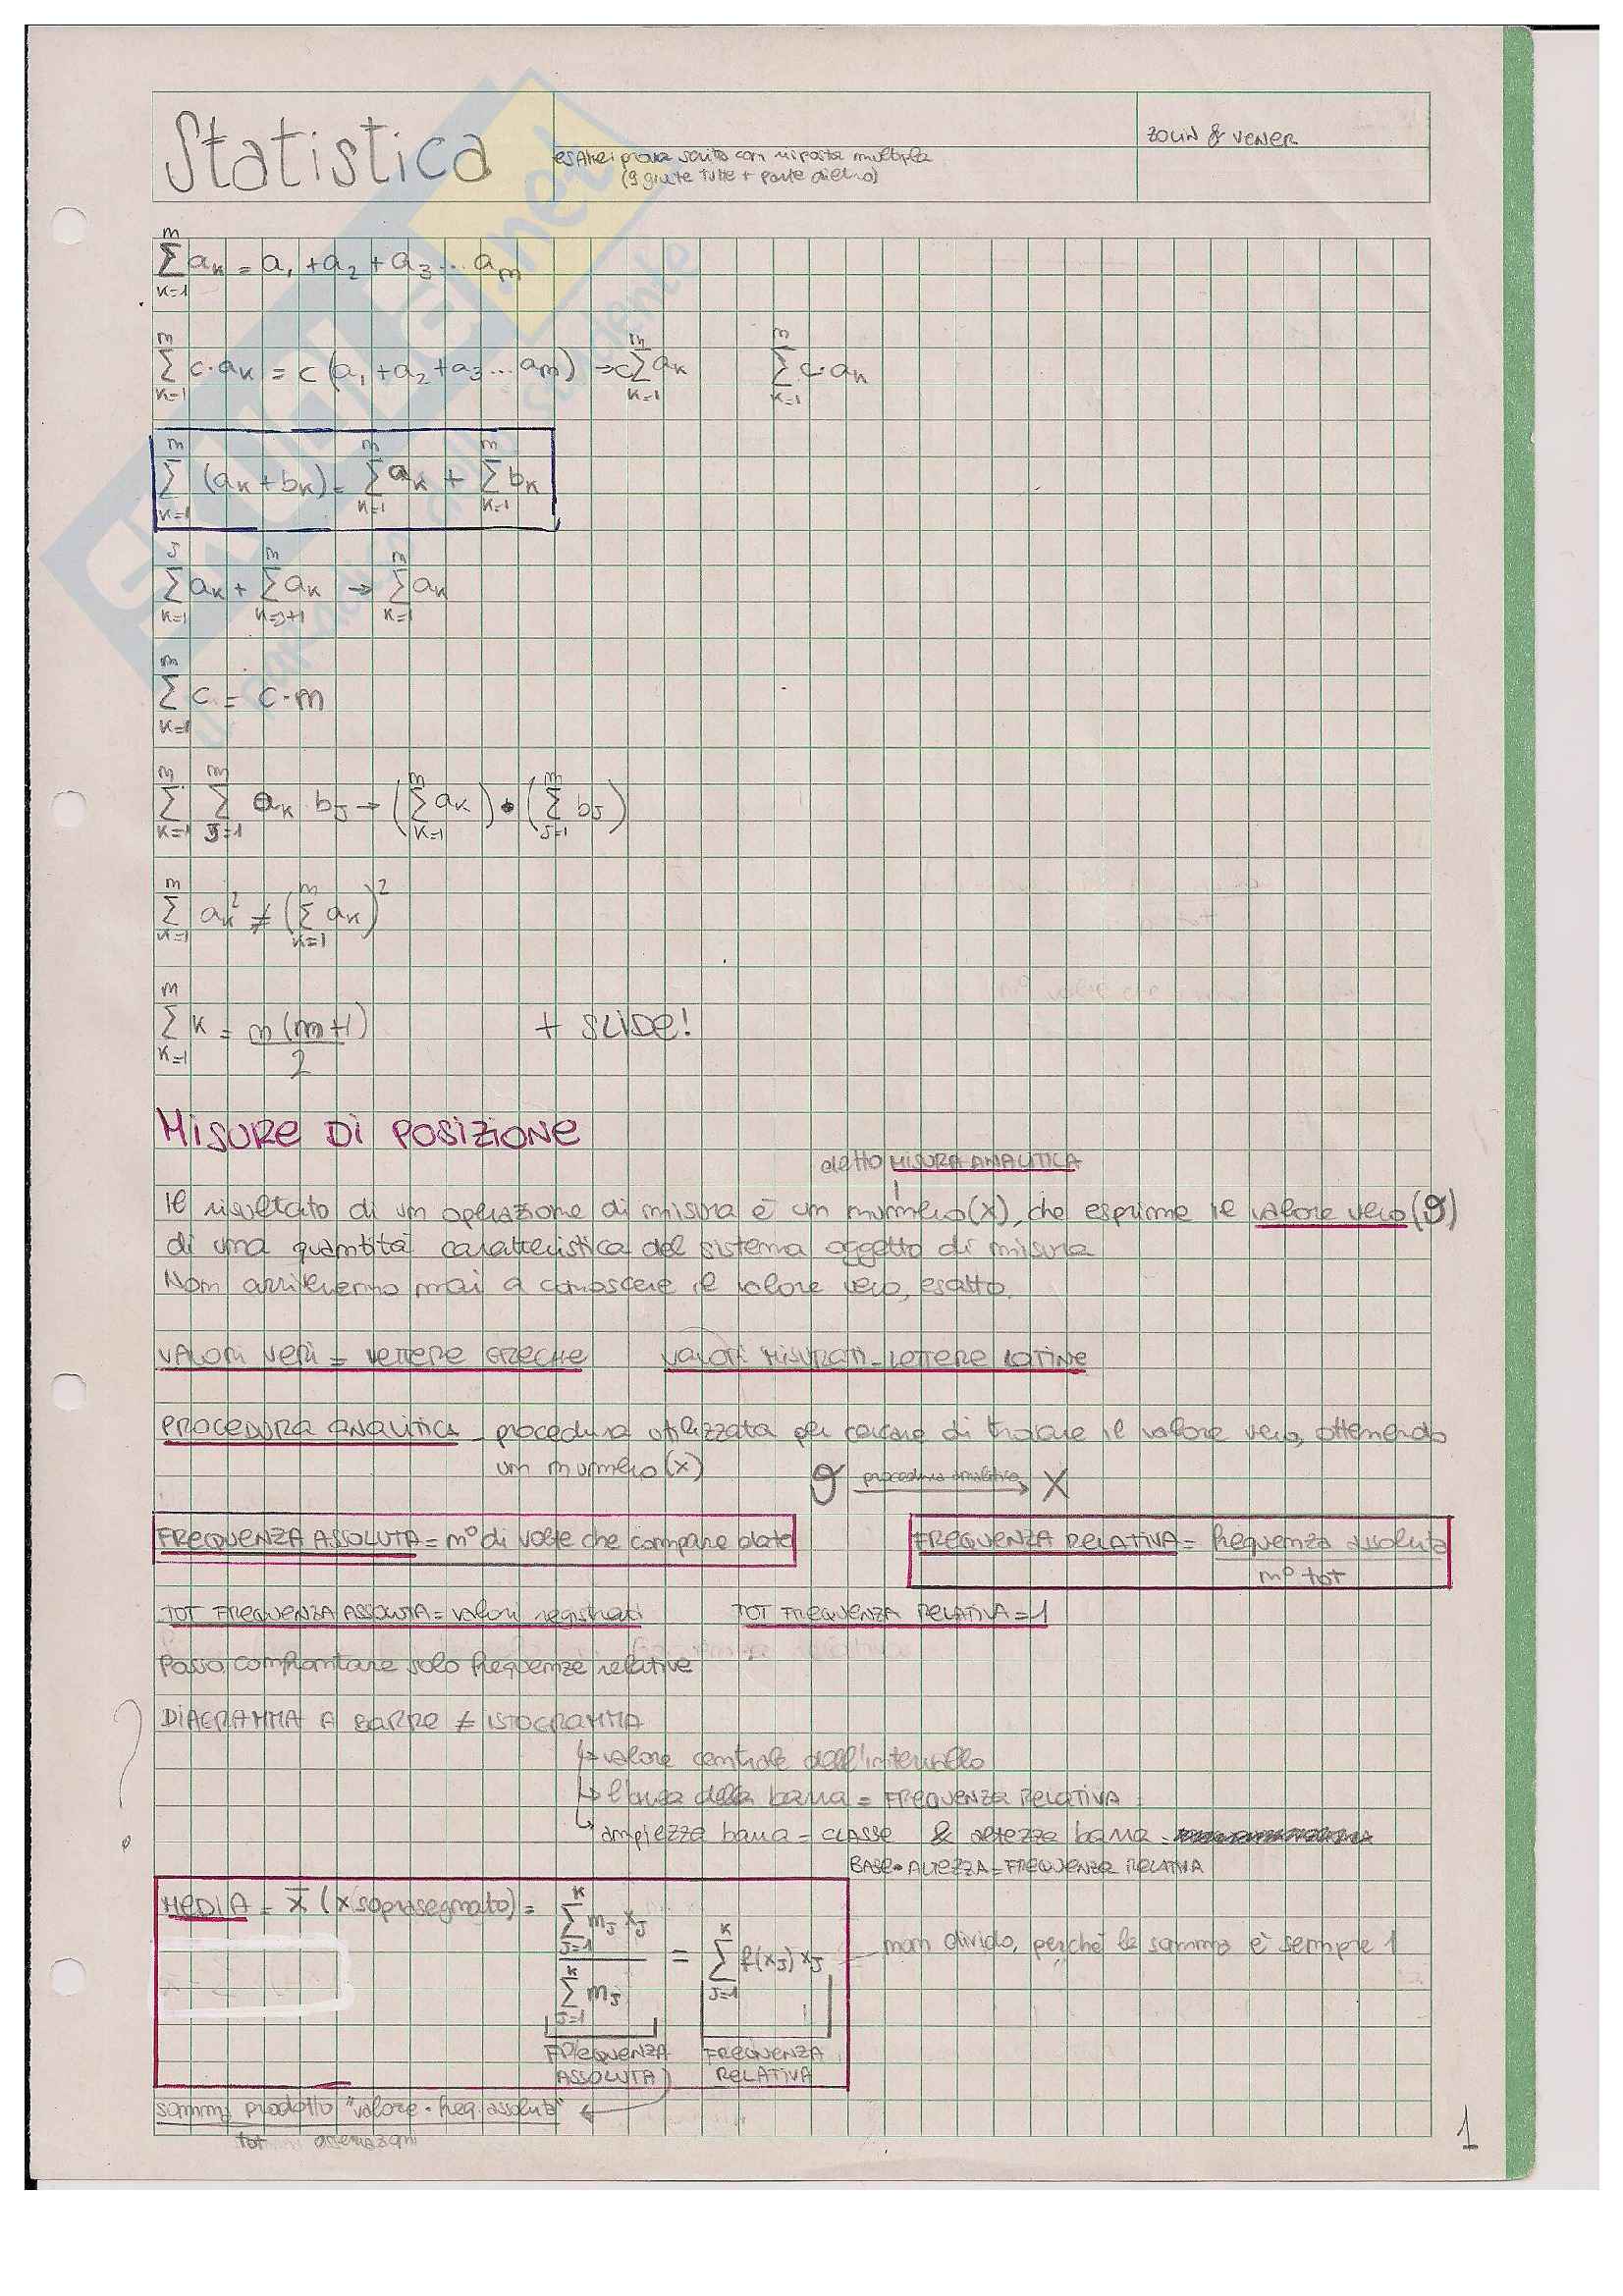 Statistica
esami prova scritta con risposta multipla
(9 giuste tutte + parte di
ZOLIN & VENER
m
Σ aₖ = a₁ + a₂ + a₃ ... aₘ
k=1
m m m
Σ c·aₖ = c (a₁ + a₂ + a₃ ... aₘ) → c Σ aₖ Σ c·aₖ
k=1 k=1 k=1
m m m
Σ (aₖ + bₖ) = Σ aₖ + Σ bₖ
k=1 k=1 k=1
J m m
Σ aₖ + Σ aₖ → Σ aₖ
k=1 k=J+1 k=1
m
Σ c = c·m
k=1
m m m m
Σ Σ aₖ bⱼ → (Σ aₖ) • (Σ bⱼ)
k=1 J=1 k=1 J=1
m m
Σ aₖ² ≠ (Σ aₖ)²
k=1 k=1
m
Σ k = m(m+1) + SLIDE!
k=1 2
MISURE DI POSIZIONE
detto MISURA ANALITICA
Il risultato di un operazione di misura è un numero (x), che esprime il valore vero (ϑ)
di una quantità caratteristica del sistema oggetto di misura
Non arriveremo mai a conoscere il valore vero, esatto.
VALORI VERI = LETTERE GRECHE VALORI MISURATI = LETTERE LATINE
PROCEDURA ANALITICA = procedura utilizzata per cercare di trovare il valore vero, ottenendo
un numero (x) ϑ procedura analitica → X
FREQUENZA ASSOLUTA = n° di volte che compare dato
FREQUENZA RELATIVA = frequenza assoluta
n° tot
TOT FREQUENZA ASSOLUTA = valori registrati TOT FREQUENZA RELATIVA = 1
Posso confrontare solo frequenze relative
? DIAGRAMMA A BARRE ≠ ISTOGRAMMA
↳ valore centrale dell'intervallo
↳ l'area della barra = FREQUENZA RELATIVA
↳ ampiezza barra = CLASSE & altezza barra =
BASE • ALTEZZA = FREQUENZA RELATIVA
K
MEDIA = x̄ (x soprasegnato) = Σ mⱼ xⱼ
J=1
K
= Σ f(xⱼ) xⱼ non divido, perché la somma è sempre 1
J=1
K
Σ mⱼ
J=1
FREQUENZA ASSOLUTA
FREQUENZA RELATIVA
somma prodotto "valore • freq. assoluta"
tot osservazioni
1